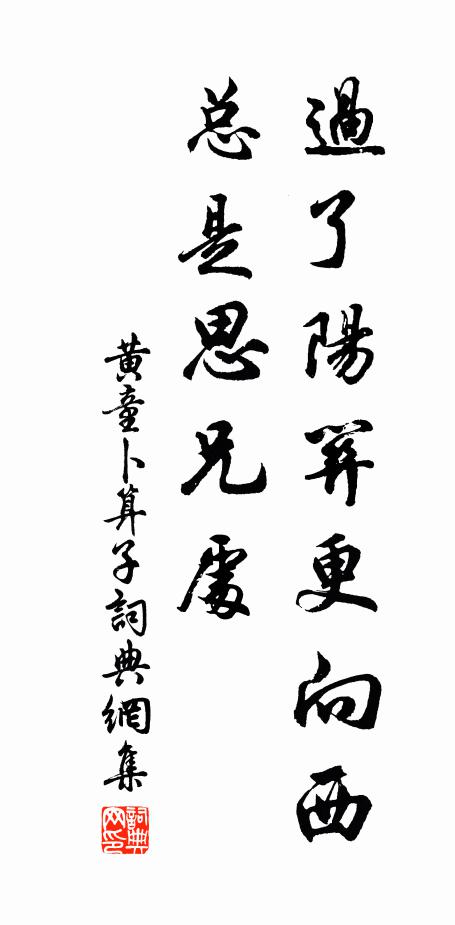 過了陽関更向西
总是思兄處
黄童卜算子詞典網集
詞典
网印